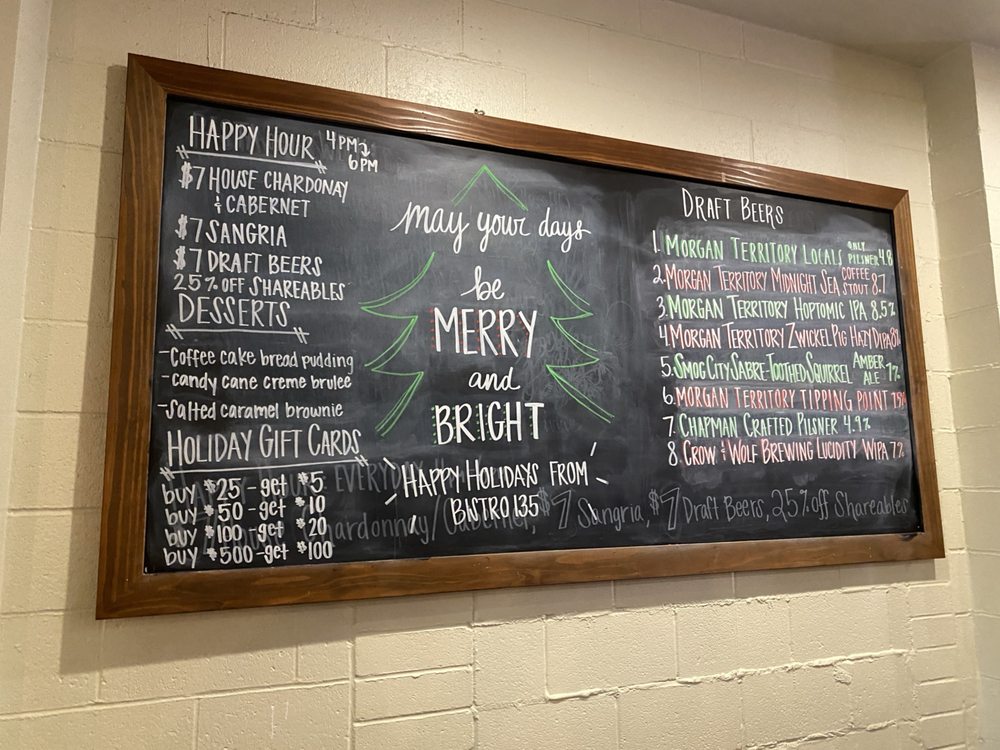 HAPPY HOUR 4PM
6PM
$7 HOUSE CHARDONAY
& CABERNET
$7 SANGRIA
$7 DRAFT BEERS
25% OFF SHAREABLES
DESSERTS
-Coffee cake bread pudding
-candy cane creme brulee
-Salted caramel brownie
HOLIDAY GIFT CARDS
buy $25 - get $5
buy $50 - get $10
buy $100 - get $20
buy $500 - get $100
may your days
be
MERRY
and
BRIGHT
HAPPY HOLIDAYS FROM
BISTRO 135
DRAFT BEERS
1. MORGAN TERRITORY LOCALS ONLY PILSNER 4.8
2. MORGAN TERRITORY MIDNIGHT SEA COFFEE STOUT 8.7
3. MORGAN TERRITORY HOPTOMIC IPA 8.5%
4. MORGAN TERRITORY ZWICKEL PIG HAZY DIPA
5. SMOG CITY SABRE-TOOTHED SQUIRREL AMBER ALE 7%
6. MORGAN TERRITORY TIPPING POINT
7. CHAPMAN CRAFTED PILSNER 4.9%
8. CROW & WOLF BREWING LUCIDITY WIPA 7%
EVERY
Chardonnay/Cabernet, $7 Sangria, $7 Draft Beers, 25% off Shareables